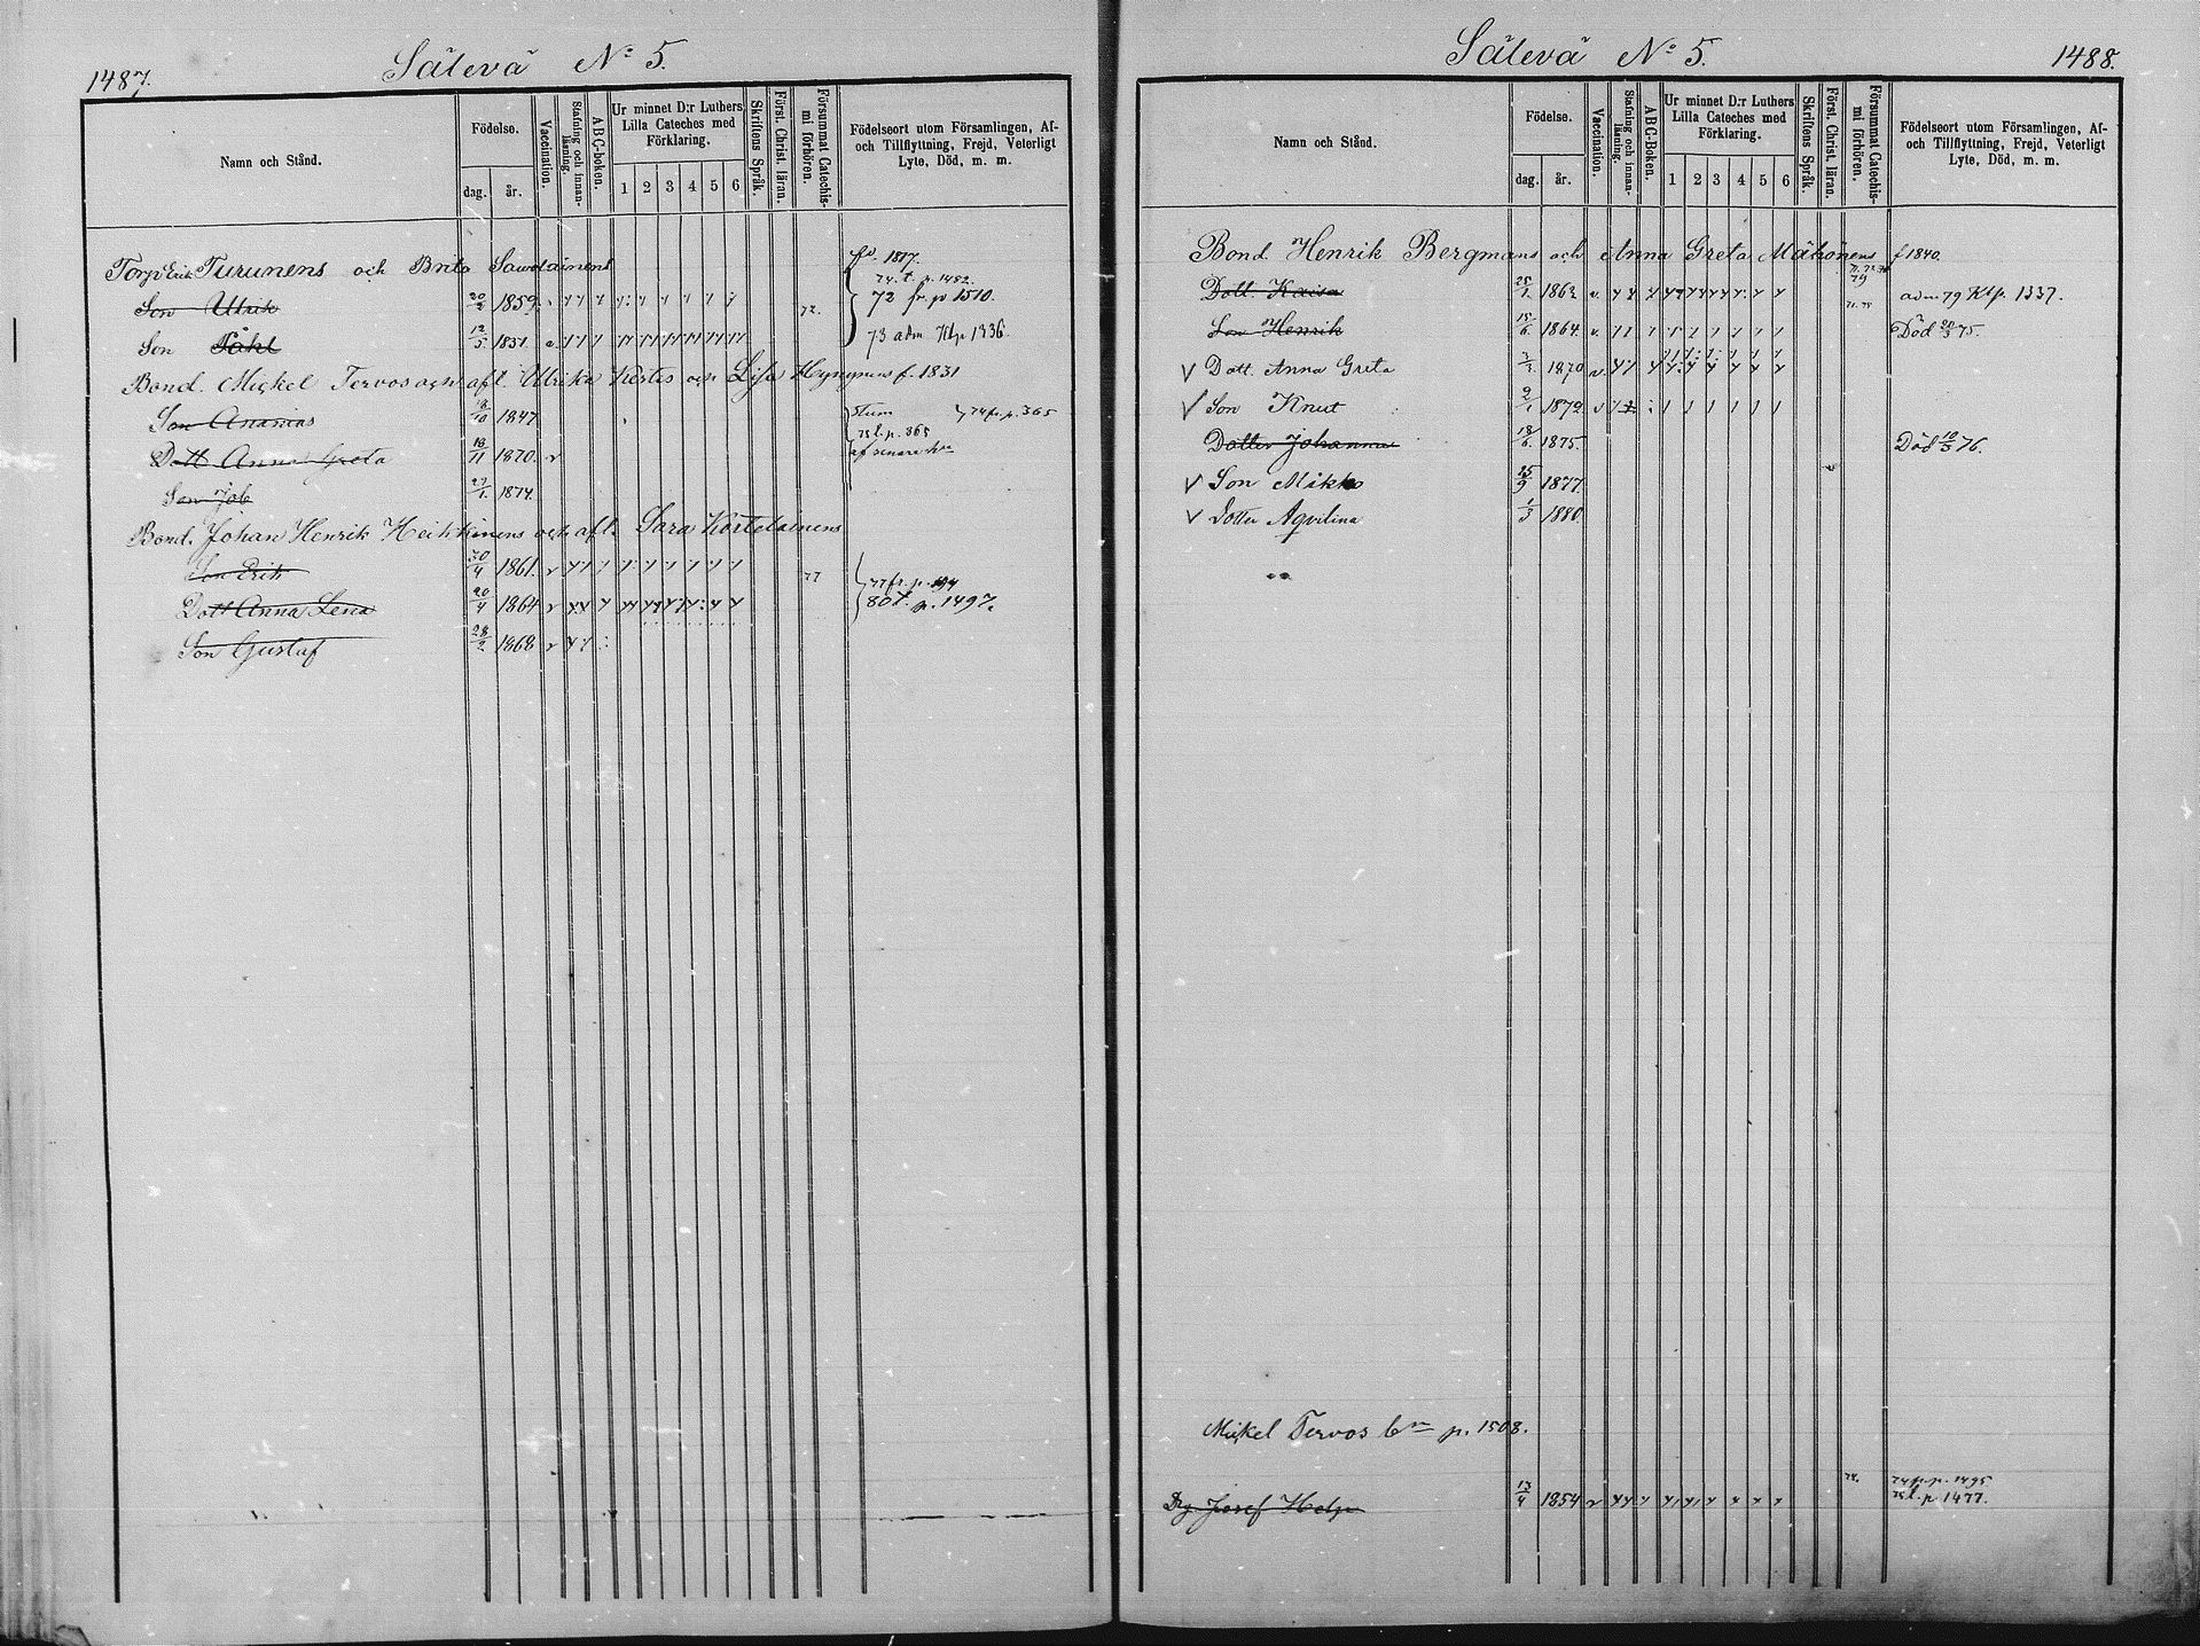 1487.
Sätevä No 5.
Namn och Stånd.
Födelse.
dag. år.
Vaccination.
Stafning och innanläsning
ABC-boken.
Ur minnet D:r Luthers Lilla Cateches med Förklaring.
1 2 3 4 5 6
Skriftens Språk.
Först. Christ. läran.
Försummat Catechismi förhören.
Födelseort utom Församlingen, Af- och Tillflyttning, Frejd, Veterligt Lyte, Död, m. m.
Torp Erik Turunens och Brita Sawolainens 1817.
74. t. p. 1482.
Son Ulrik 20/2 1859. 72. 72 fr. p 1510.
Son Påhl 12/5 1857. 73 adm. Ktp 1336.
Bond. Mickel Tervos och afl. Ulrika Kertes och Lisa Hynynens f. 1831
Son Ananias 18/10 1847 Stum 74 fr. p. 365
75 l. p. 365
Dott Anna Greta 18/11 1870. v af senare
Son Job 27/1 1874.
Bond. Johan Henrik Heikkinens och afl. Sara Kortelainens
Son Erik 30/4 1861. v 77 77 fr. p.
Dott Anna Lena 20/4 1864 v 80 t. p. 1497.
Son Gustaf 28/2 1868 v
Sätevä No 5.
1488.
Namn och Stånd.
Födelse.
dag. år.
Vaccination.
Stafning och innanläsning.
ABC-Boken.
Ur minnet D:r Luthers Lilla Cateches med Förklaring.
1 2 3 4 5 6
Skriftens Språk.
Först. Christ. läran.
Försummat Catechismi förhören.
Födelseort utom Församlingen, Af- och Tillflyttning, Frejd, Veterligt Lyte, Död, m. m.
Bond Henrik Bergmans och Anna Greta Mähönens f 1840.
79
Dott. Kaisa 25/1 1862 v. adm 79 Ktp. 1337.
Son Henrik 15/6 1864. v. Död 20/3 75.
V Dott. Anna Greta 1870 v.
V Son Knut 2/1 1872 v
Dotter Johanna 18/6 1875. Död 10/3 76.
V Son Mikko 15/9 1877.
V Dotter Aqvilina 1/3 1880
Mickel Tervos p. 1508.
74. 74 fr. p. 1495
Drg Josef Help 13/4 1854 v 75 l. p 1477.